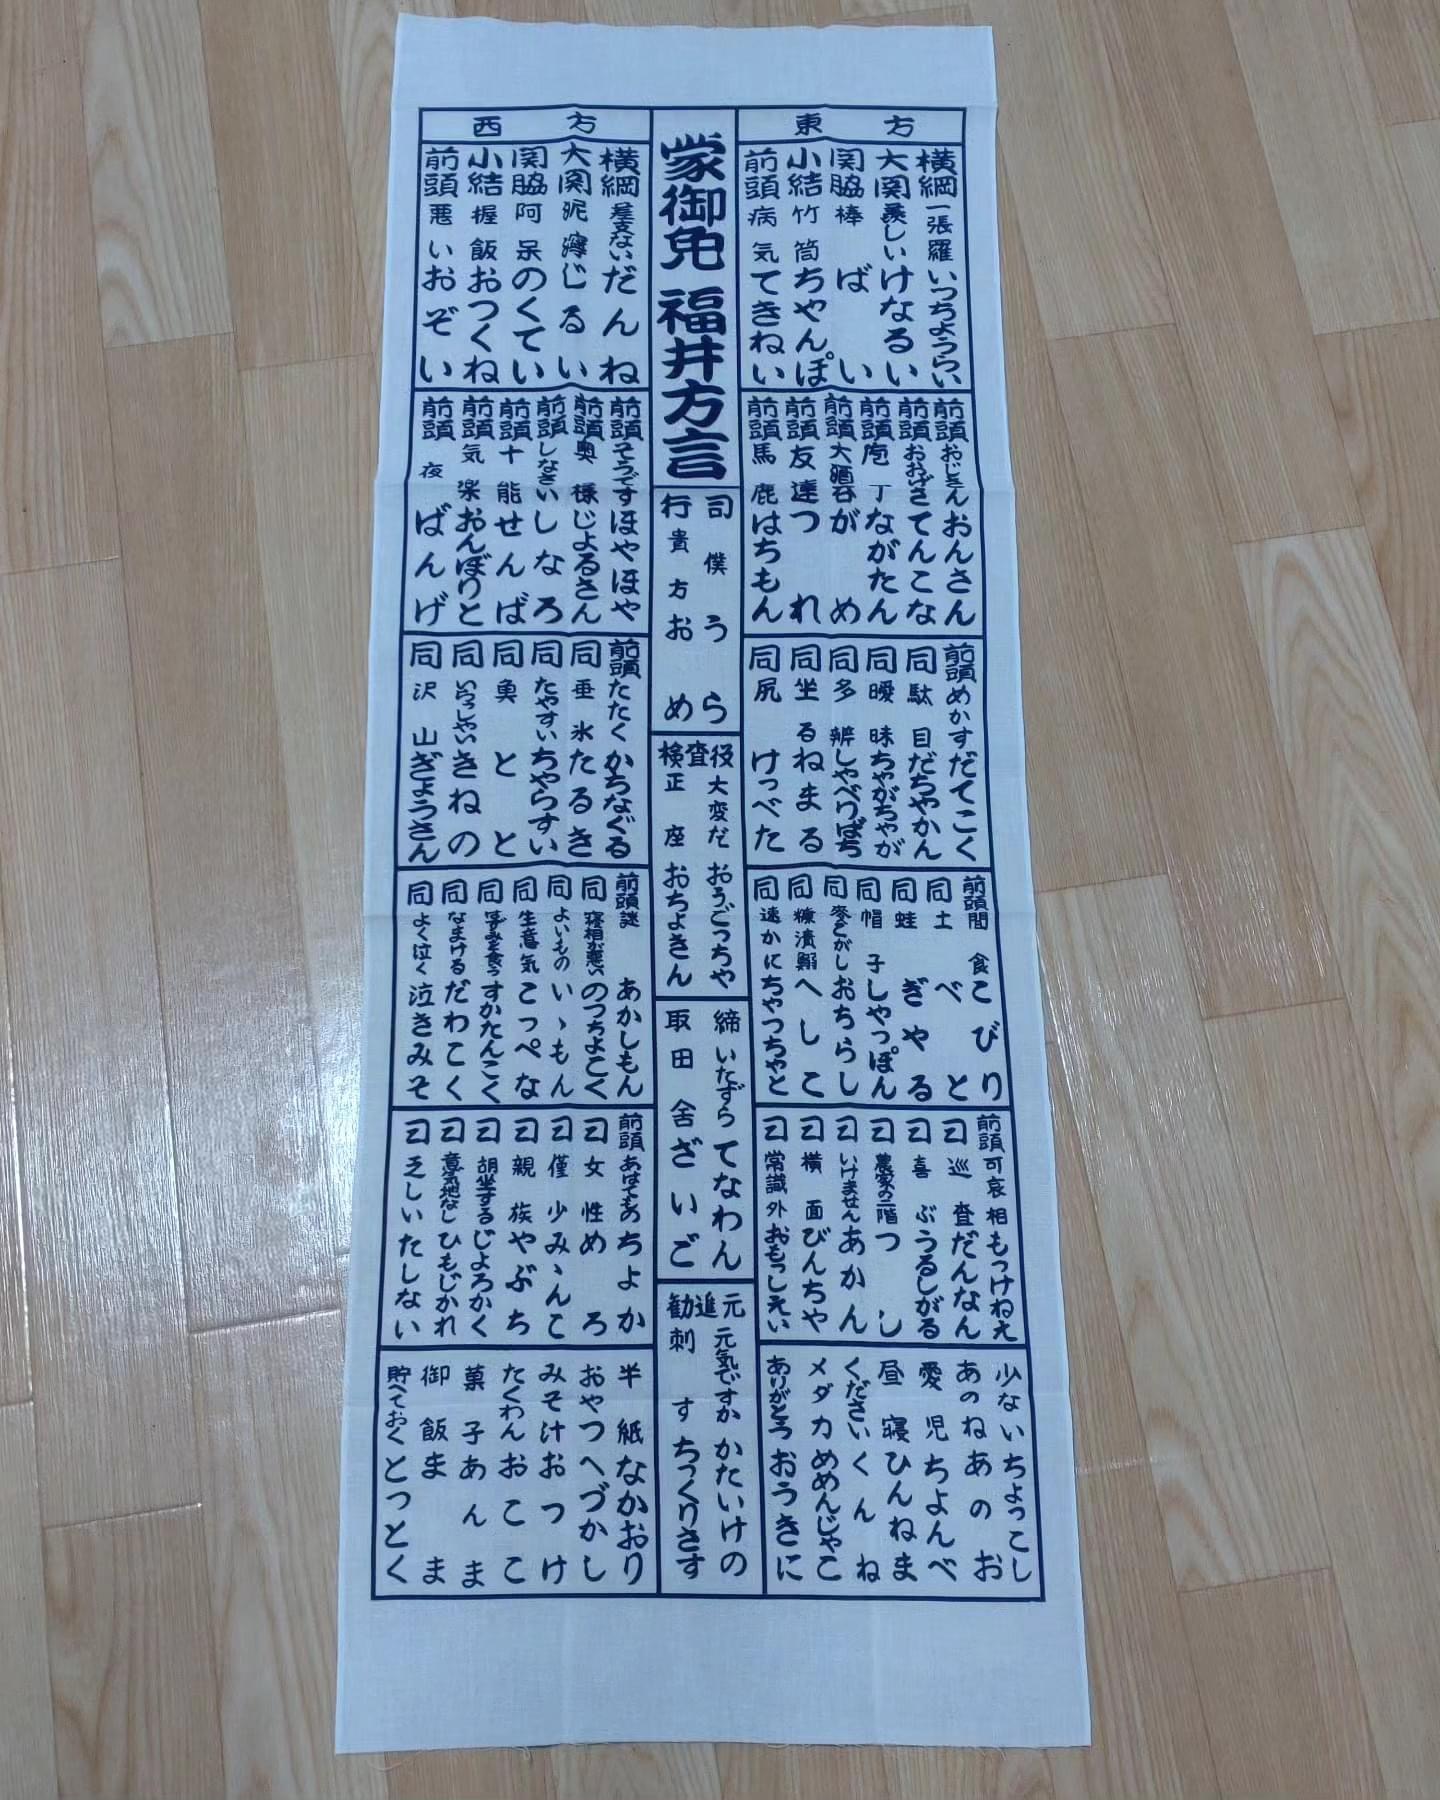 東方
横綱 一張羅 いっちょうらい
大関 羨しい けなるい
関脇 棒 ばい
小結 竹筒 ちゃんぽい
前頭 病気 てきねい
前頭 おじさん おんさん
前頭 おおげさ てんこな
前頭 庖丁 ながたん
前頭 大酒呑 がめ
前頭 友達 つれ
前頭 馬鹿 はちもん
前頭 めかす だてこく
同 駄目 だちゃかん
同 曖昧 ちゃがちゃが
同 多辨 しゃべりばち
同 坐る ねまる
同 尻 けっべた
前頭 間食 こびり
同 土 べと
同 蛙 ぎゃる
同 帽子 しゃっぽん
同 麥こがし おちらし
同 糠漬鰯 へしこ
同 速かに ちゃっちゃと
前頭 可哀相 もっけねえ
〃 巡査 だんなん
〃 喜ぶ うるしがる
〃 農家の二階 つし
〃 いけません あかん
〃 横面 びんちゃ
〃 常識外 おもっしぇい
少ない ちょっこし
あのね あのお
愛児 ちょんべ
昼寝 ひんねま
ください くんね
メダカ めめんじゃこ
ありがとう おうきに
蒙御免 福井方言
行司
僕 うら
貴方 おめ
検査役
大変だ おうごっちゃ
正座 おちょきん
取締
いたずら てなわん
田舎 ざいご
勧進元
元気ですか かたいけの
刺す ちっくりさす
西方
横綱 差支ない だんね
大関 泥濘 じるい
関脇 阿呆 のくてい
小結 握飯 おつくね
前頭 悪い おぞい
前頭 そうです ほやほや
前頭 奥様 じょるさん
前頭 しなさい しなろ
前頭 十能 せんば
前頭 気楽 おんぼりと
前頭 夜 ばんげ
前頭 たたく かちなぐる
同 垂氷 たるき
同 たやすい ちゃらすい
同 魚 とと
同 いらっしゃい きねの
同 沢山 ぎょうさん
前頭 謎 あかしもん
同 寝相が悪い のっちょこく
同 よいもの いゝもん
同 生意気 こっぺな
同 すかたんこく
同 なまける だわこく
同 よく泣く 泣きみそ
前頭 あはてもの ちょか
〃 女性 めろ
〃 僅少 みゝんこ
〃 親族 やぶち
〃 胡坐する じょろかく
〃 意気地なし ひもじかれ
〃 乏しい たしない
半紙 なかおり
おやつ へづかし
みそ汁 おつけ
たくわん おここ
菓子 あんま
御飯 まま
貯へておく とっとく